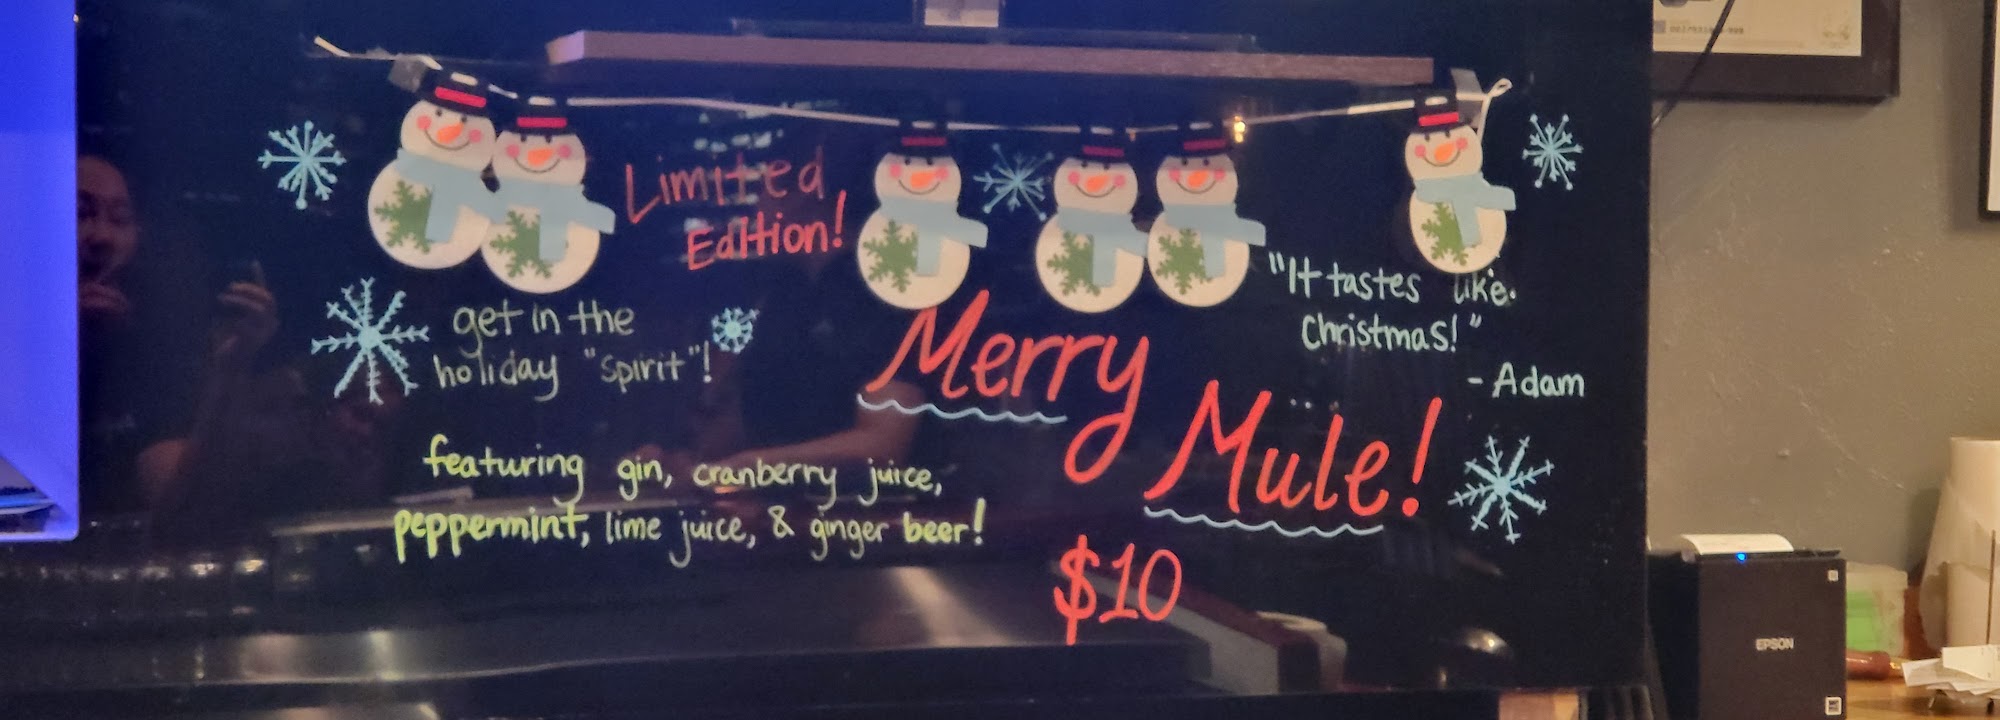 Limited
Edition!
get in the
holiday "spirit"!
featuring gin, cranberry juice,
peppermint, lime juice, & ginger beer!
Merry
Mule!
$10
"It tastes like
Christmas!"
- Adam
EPSON